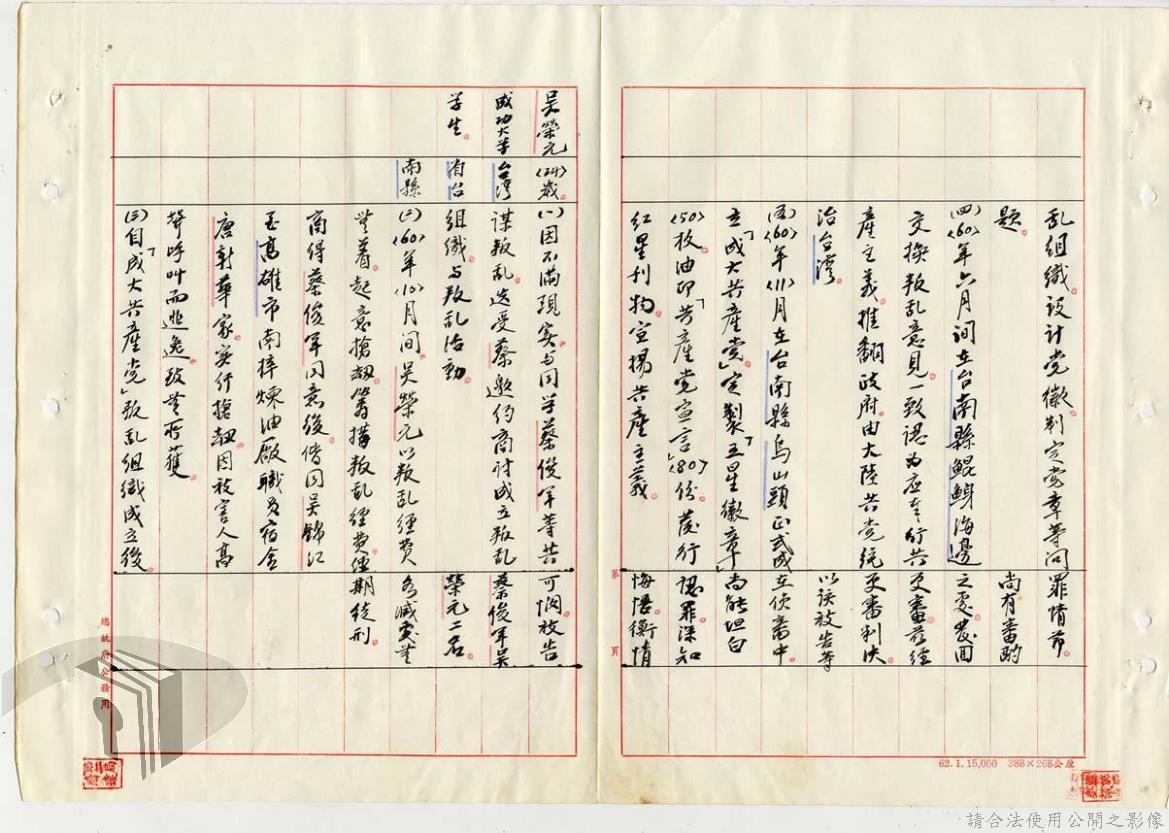 乱組織。設計党徽。判定党章等問
題。
(四)(60)年六月间在台南縣鯤鯓海邊
交換叛乱意見。一致認为应奉行共
產主義。推翻政府由大陸共党統
治台灣。
(五)(60)年(11)月在台南縣烏山頭正式成
立「成大共產党」。定製「五星徽章」
(50)枚。油印「共產党宣言」(80)份。發行
紅星刊物。宣揚共產主義。
罪情節。
尚有審酌
之處。發回
更審。茲經
更審判决
以該被告等
在侦審中。
尚能坦白
認罪深知
悔悟。衡情
第 頁
62.1.15,000 388×268公厘
吴榮元
成功大学
学生。
(24歲)
台灣
省台
南縣
(一)因不滿現实与同学蔡俊军等共
謀叛乱。迭受蔡邀约商討成立叛乱
組織。与叛乱活動。
(二)(60)年(10)月间。吴榮元以叛乱經費
無着。起意搶劫。籌措叛乱經費。經
商得蔡俊军同意後。偕同吴錦江
至高雄市南梓煉油廠職員宿舍
唐新華家。实行搶劫。因被害人高
聲呼叫而逃逸。致無所獲。
(三)自「成大共產党」叛乱組織成立後。
可憫。被告
蔡俊军吴
榮元二名。
各減處無
期徒刑。
總統府公務用
請合法使用公開之影像